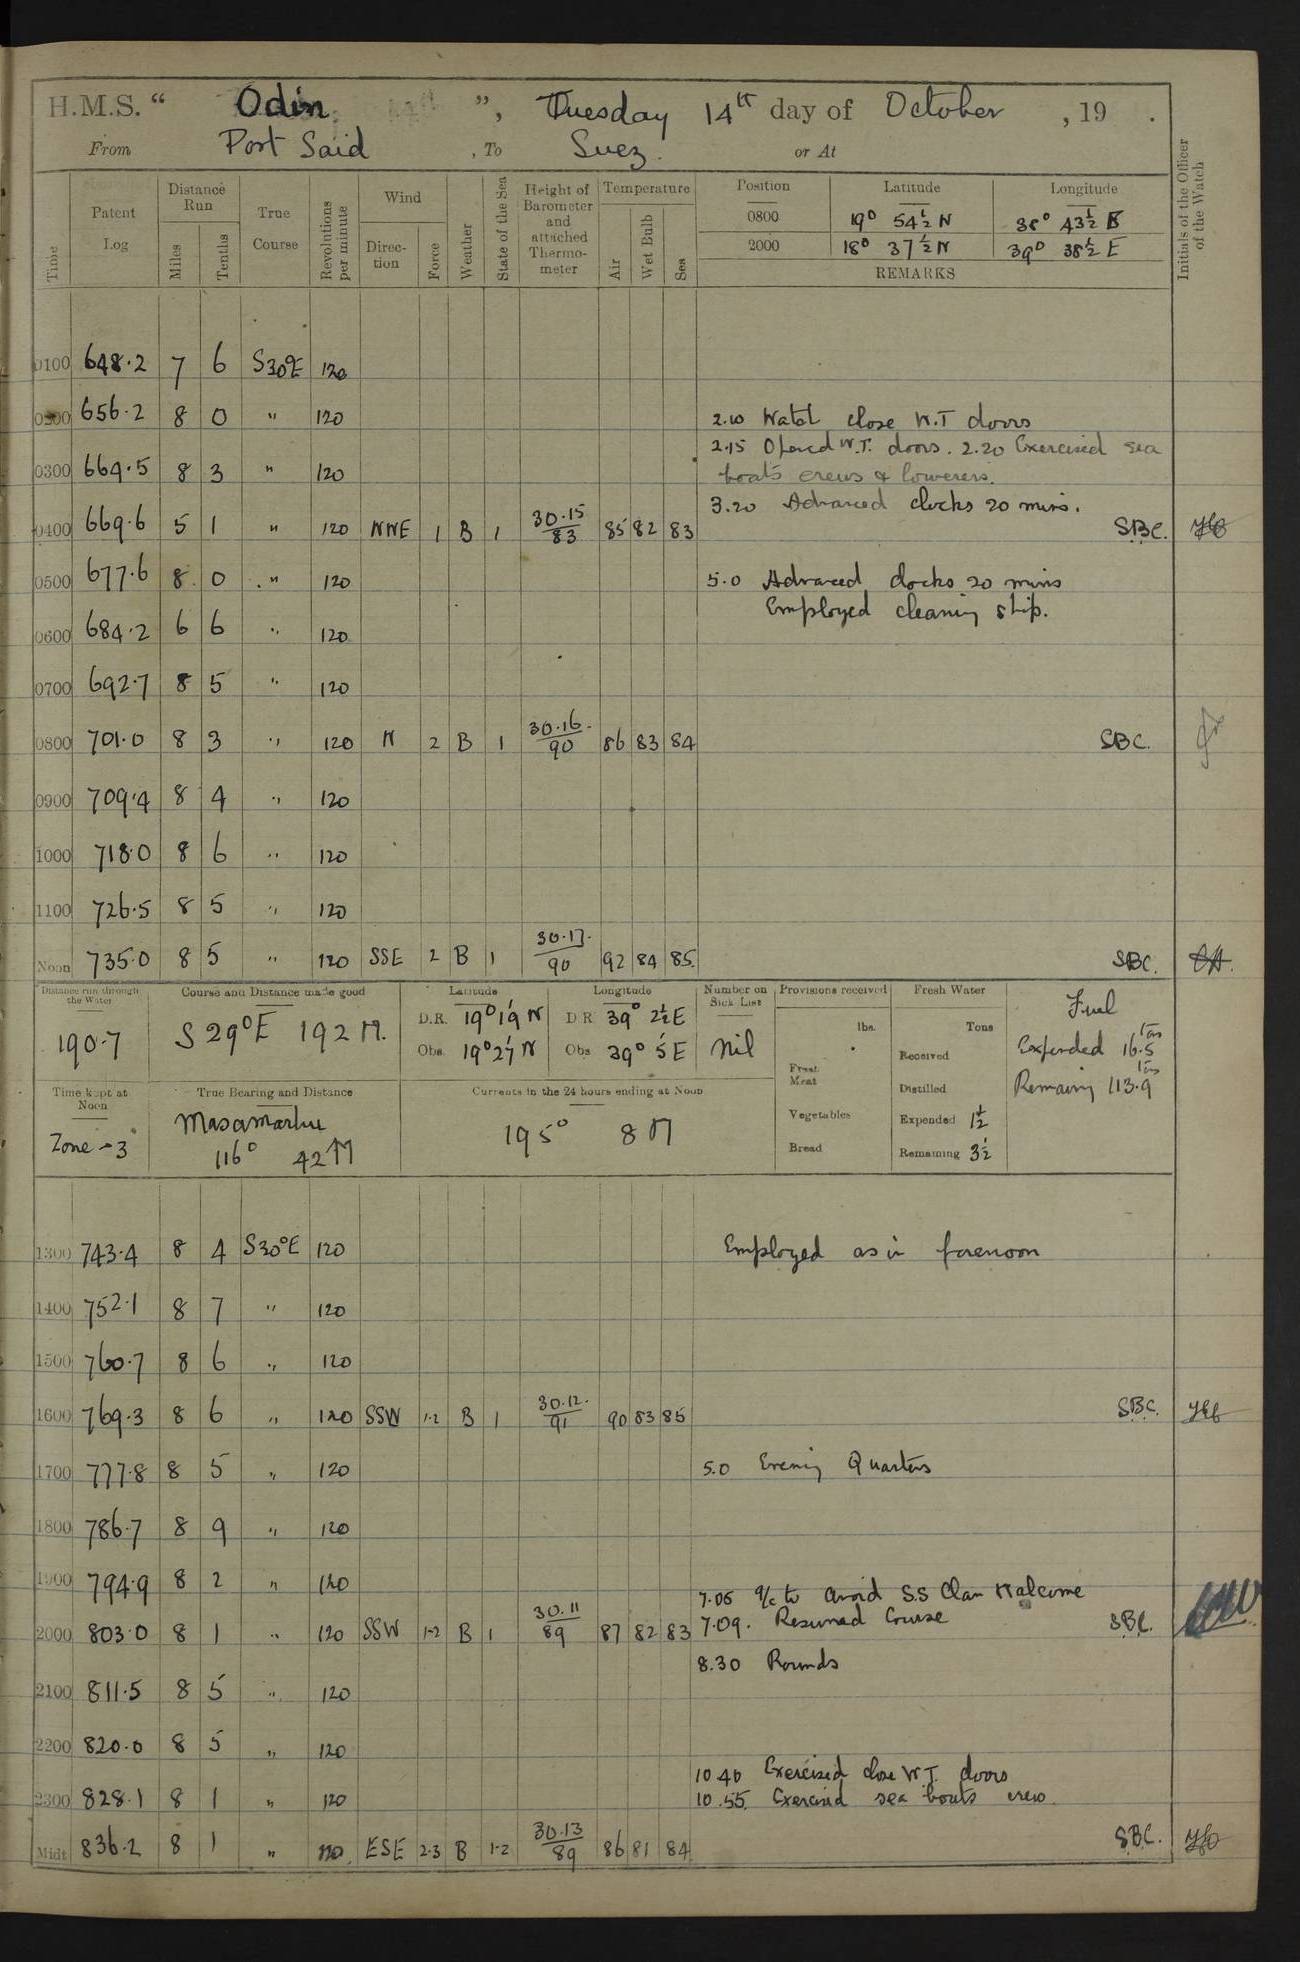 H.M.S. “ Odin ”, Tuesday 14th day of October , 19 .
From Port Said , To Suez. or At
Initials of the Officer of the Watch
Time
Patent Log
Distance Run
Miles
Tenths
True Course
Revolutions per minute
Wind
Direction
Force
Weather
State of the Sea
Height of Barometer and attached Thermometer
Temperature
Air
Wet Bulb
Sea
Position Latitude Longitude
0800 19° 54½ N 38° 43½ E
2000 18° 37½ N 39° 38½ E
REMARKS
0100 648.2 7 6 S30°E 120
0200 656.2 8 0 " 120 2.10 Watch close W.T doors
2.15 Opened W.T. doors. 2.20 Exercised sea
0300 664.5 8 3 " 120 boats crews & lowerers.
3.20 Advanced clocks 20 mins.
0400 669.6 5 1 " 120 NNE 1 B 1 30.15/83 85 82 83 SBC.
0500 677.6 8 0 " 120 5.0 Advanced clocks 20 mins
Employed cleaning ship.
0600 684.2 6 6 " 120
0700 692.7 8 5 " 120
0800 701.0 8 3 " 120 N 2 B 1 30.16/90 86 83 84 SBC.
0900 709.4 8 4 " 120
1000 718.0 8 6 " 120
1100 726.5 8 5 " 120
Noon 735.0 8 5 " 120 SSE 2 B 1 30.17/90 92 84 85 SBC.
Distance run through the Water
190.7
Course and Distance made good
S 29°E 192 M.
Latitude
D.R. 19° 19' N
Obs. 19° 27' N
Longitude
D R 39° 2½ E
Obs 39° 5' E
Number on Sick List
Nil
Provisions received
lbs.
Fresh Meat
Vegetables
Bread
Fresh Water
Tons
Received
Distilled
Expended 1½
Remaining 3½
Fuel
Expended 16.5 Tons
Remaining 113.9 Tons
Time kept at Noon
Zone -3
True Bearing and Distance
Masamarhu
116° 42 M
Currents in the 24 hours ending at Noon
195° 8 M
1300 743.4 8 4 S30°E 120 Employed as in forenoon
1400 752.1 8 7 " 120
1500 760.7 8 6 " 120
1600 769.3 8 6 " 120 SSW 1-2 B 1 30.12/91 90 83 85 SBC.
1700 777.8 8 5 " 120 5.0 Evening Quarters
1800 786.7 8 9 " 120
1900 794.9 8 2 " 120
7.06 a/c to avoid S.S Clan Malcome
2000 803.0 8 1 " 120 SSW 1-2 B 1 30.11/89 87 82 83 7.09. Resumed Course SBC.
8.30 Rounds
2100 811.5 8 5 " 120
2200 820.0 8 5 " 120
10 40 Exercised close W.T. doors
2300 828.1 8 1 " 120 10.55 Exercised sea boats crew.
Midt 836.2 8 1 " 120 ESE 2-3 B 1-2 30.13/89 86 81 84 SBC.